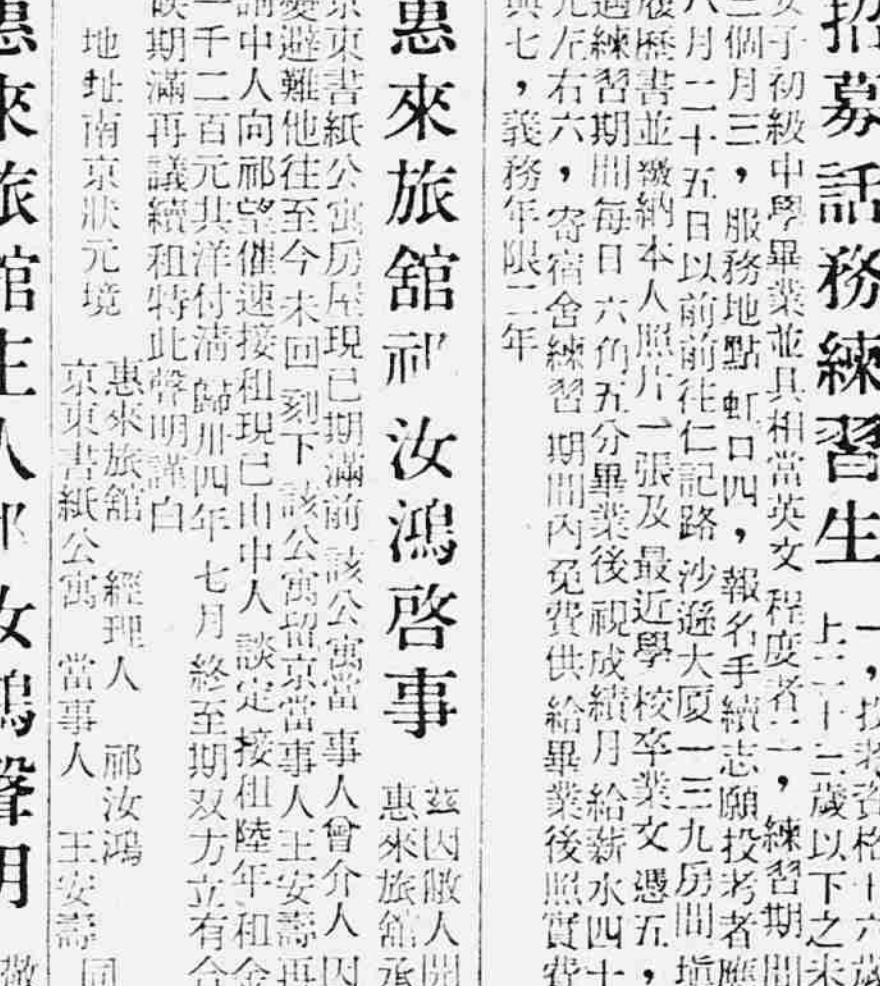 招募話務練習生
一，投考資格十六歲
上二十二歲以下之未
女子初級中學畢業並具相當英文程度者二，練習期間
三個月三，服務地點虹口四，報名手續志願投考者應
八月二十五日以前前往仁記路沙遜大厦一三九房間塡
履歷書並繳納本人照片一張及最近學校卒業文憑五，
練習期間每日六角五分畢業後視成績月給薪水四十
元左右六，寄宿舍練習期間內免費供給畢業後照實費
七，義務年限二年
惠來旅舘祁汝鴻啓事
茲因敝人開
惠來旅舘承
京東書紙公寓房屋現已期滿前該公寓當事人曾介人因
變避難他往至今未回刻下該公寓留京當事人王安壽再
請中人向祁望催速接租現已由中人談定接租陸年租金
一千二百元共洋付清歸卅四年七月終至期双方立有合
期滿再議續租特此聲明謹白
地址南京狀元境
惠來旅舘 經理人 祁汝鴻
京東書紙公寓 當事人 王安壽
同
惠來旅舘主人祁汝鴻聲明
敝